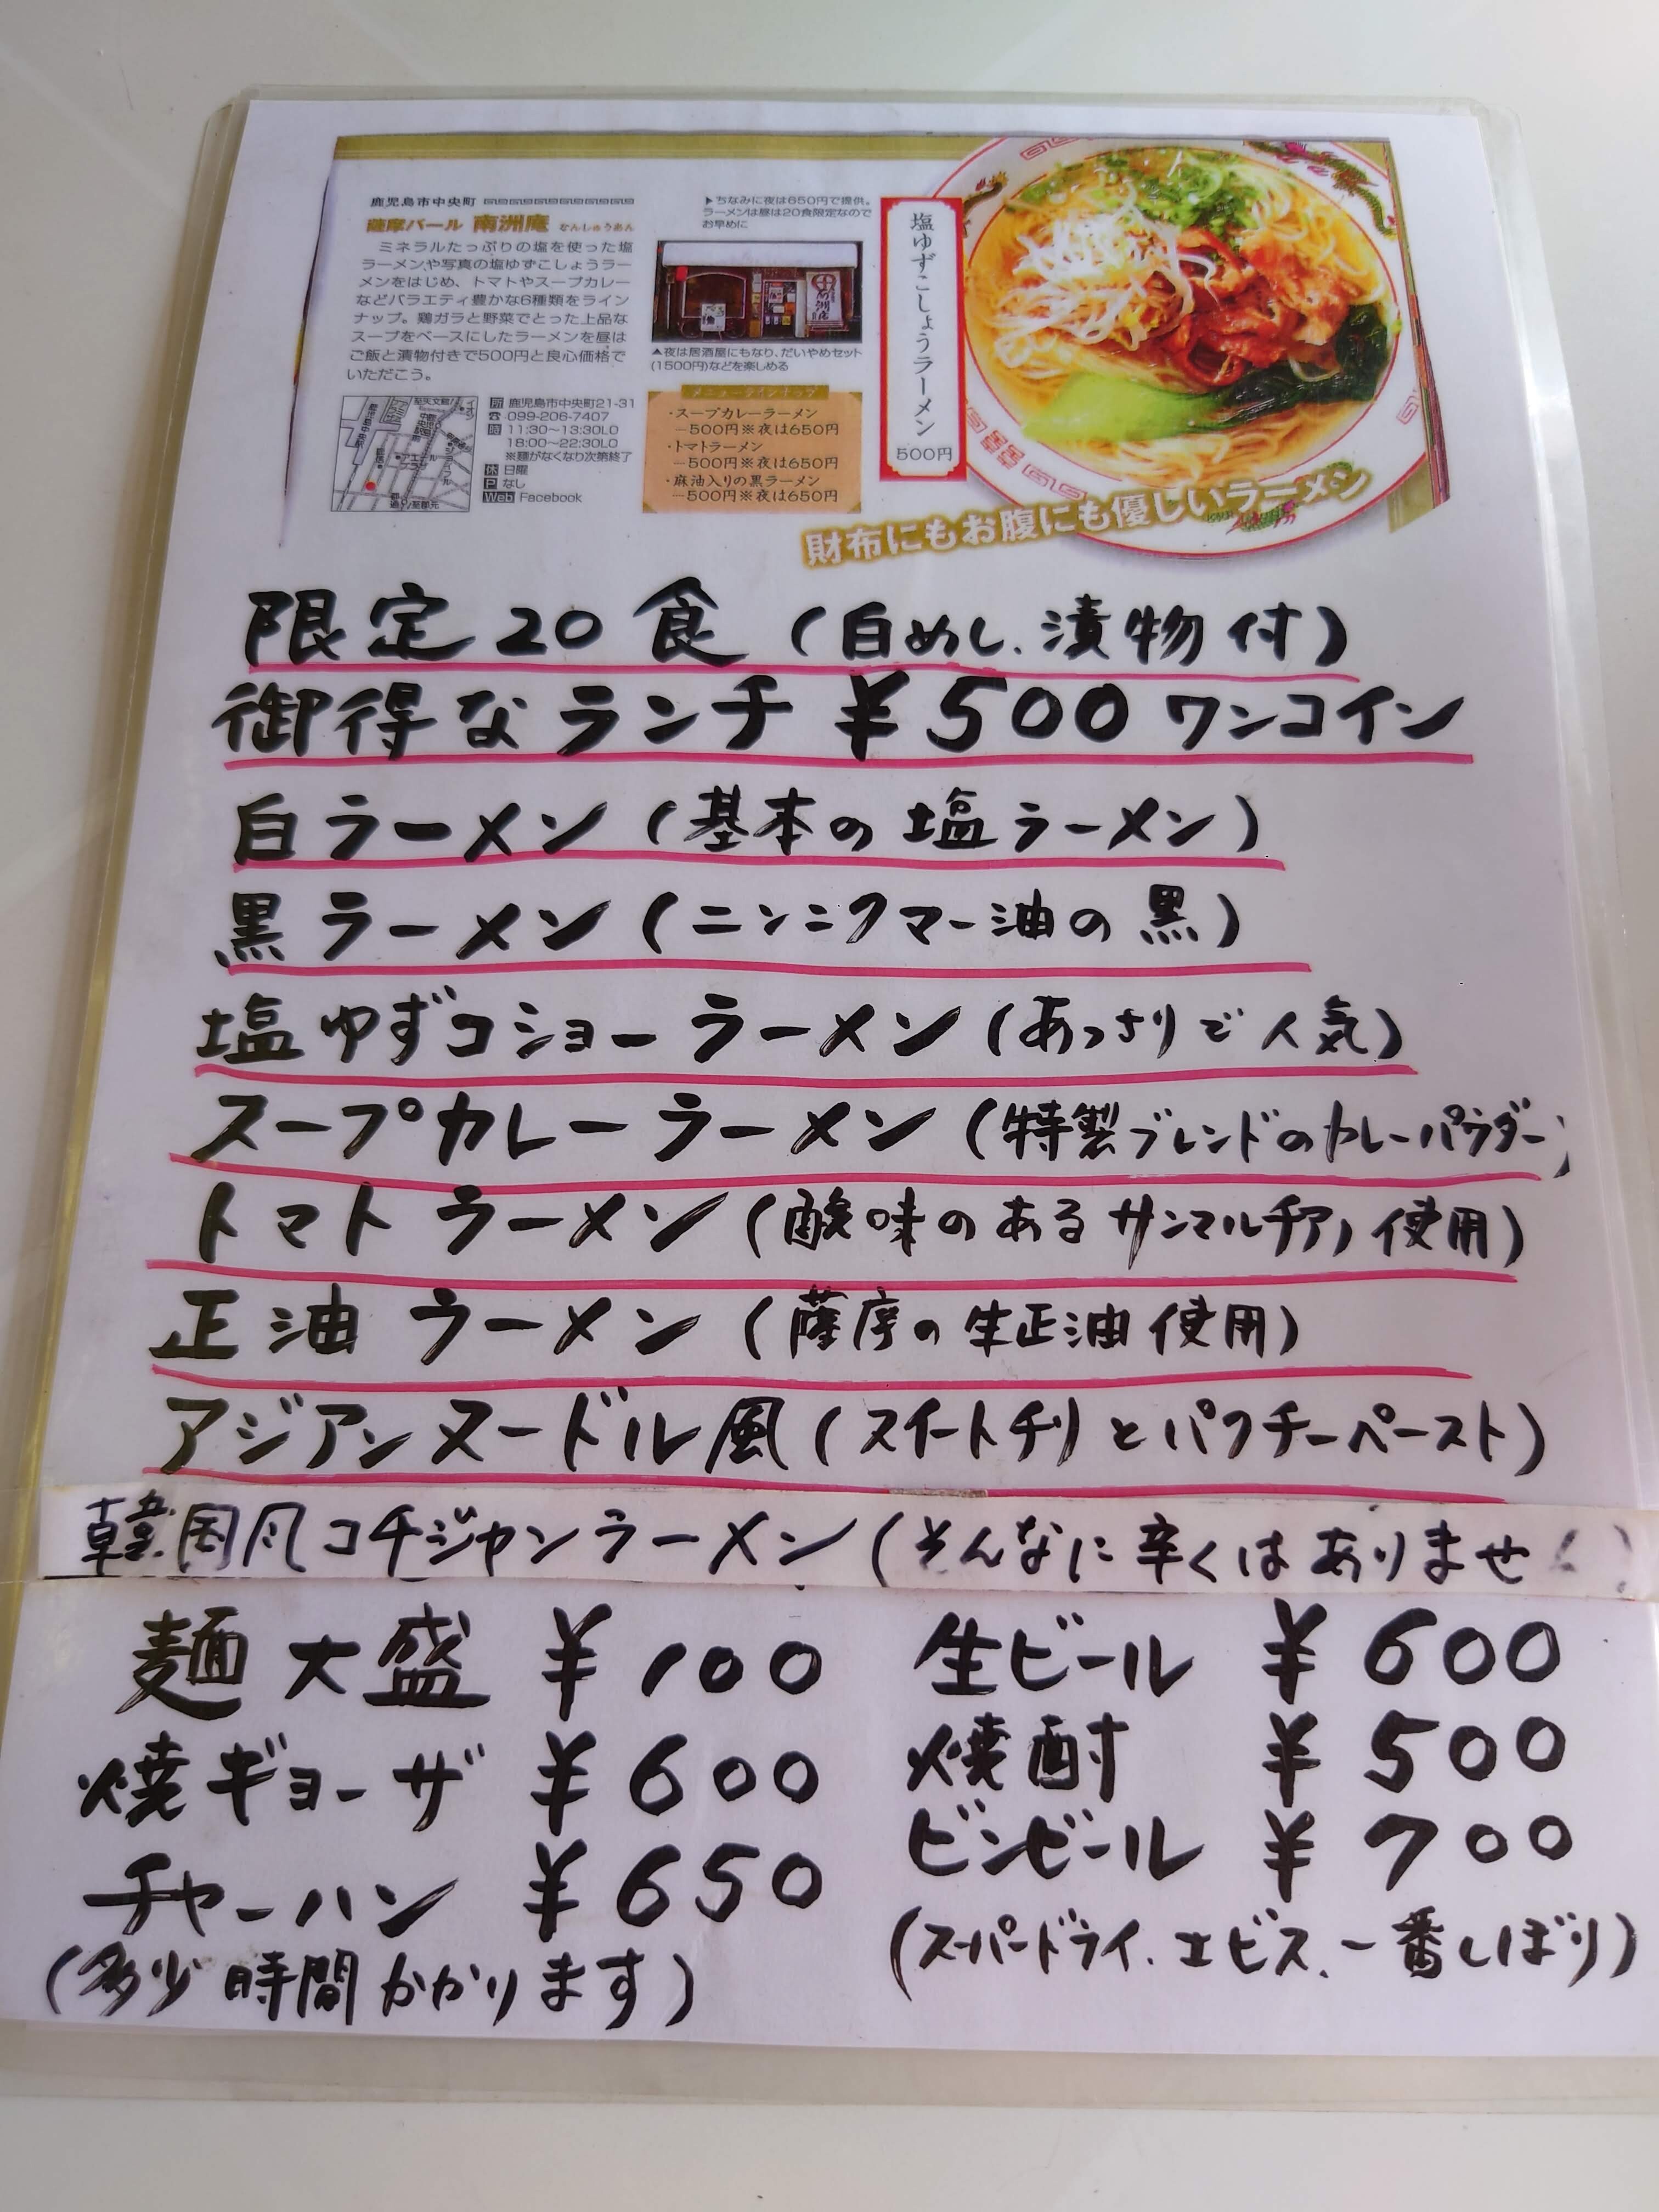 鹿児島市中央町
薩摩バール 南洲庵 なんしゅうあん
ミネラルたっぷりの塩を使った塩
ラーメンや写真の塩ゆずこしょうラー
メンをはじめ、トマトやスープカレー
などバラエティ豊かな6種類をライン
ナップ。鶏ガラと野菜でとった上品な
スープをベースにしたラーメンを昼は
ご飯と漬物付きで500円と良心価格で
いただこう。
▶ちなみに夜は650円で提供。
ラーメンは昼は20食限定なので
お早めに
▲夜は居酒屋にもなり、だいやめセット
(1500円)などを楽しめる
所 鹿児島市中央町21-31
☎ 099-206-7407
時 11:30〜13:30LO
18:00〜22:30LO
※麺がなくなり次第終了
休 日曜
P なし
Web Facebook
メニューラインナップ
・スープカレーラーメン
―500円※夜は650円
・トマトラーメン
―500円※夜は650円
・麻油入りの黒ラーメン
―500円※夜は650円
塩ゆずこしょうラーメン
500円
財布にもお腹にも優しいラーメン
限定20食(白めし、漬物付)
御得なランチ ¥500ワンコイン
白ラーメン(基本の塩ラーメン)
黒ラーメン(ニンニクマー油の黒)
塩ゆずコショーラーメン(あっさりで人気)
スープカレーラーメン(特製ブレンドのカレーパウダー)
トマトラーメン(酸味のあるサンマルチアノ使用)
正油ラーメン(薩摩の生正油使用)
アジアンヌードル風(スイートチリとパクチーペースト)
韓国風コチジャンラーメン(そんなに辛くはありませ
麺大盛 ¥100
焼ギョーザ ¥600
チャーハン ¥650
(多少時間かかります)
生ビール ¥600
焼酎 ¥500
ビンビール ¥700
(スーパードライ、エビス、一番しぼり)